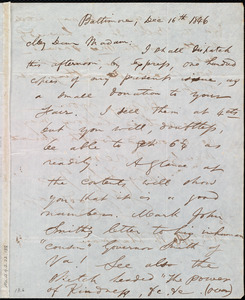 Baltimore, Dec 16th 1846
My Dear Madam: I shall dispatch
this afternoon, by Express, one hundred
copies of our present issue as
a small donation to your
Fair. I sell them at 4cts
but you will, doubtless,
be able to get 6¼ as
readily. A glance at
the contents will show
you that it is a good
number. Mark John
Smith's letter to
Governor Smith of
Va! See also the
sketch headed "the power
of Kindness, &c. &c. (over)